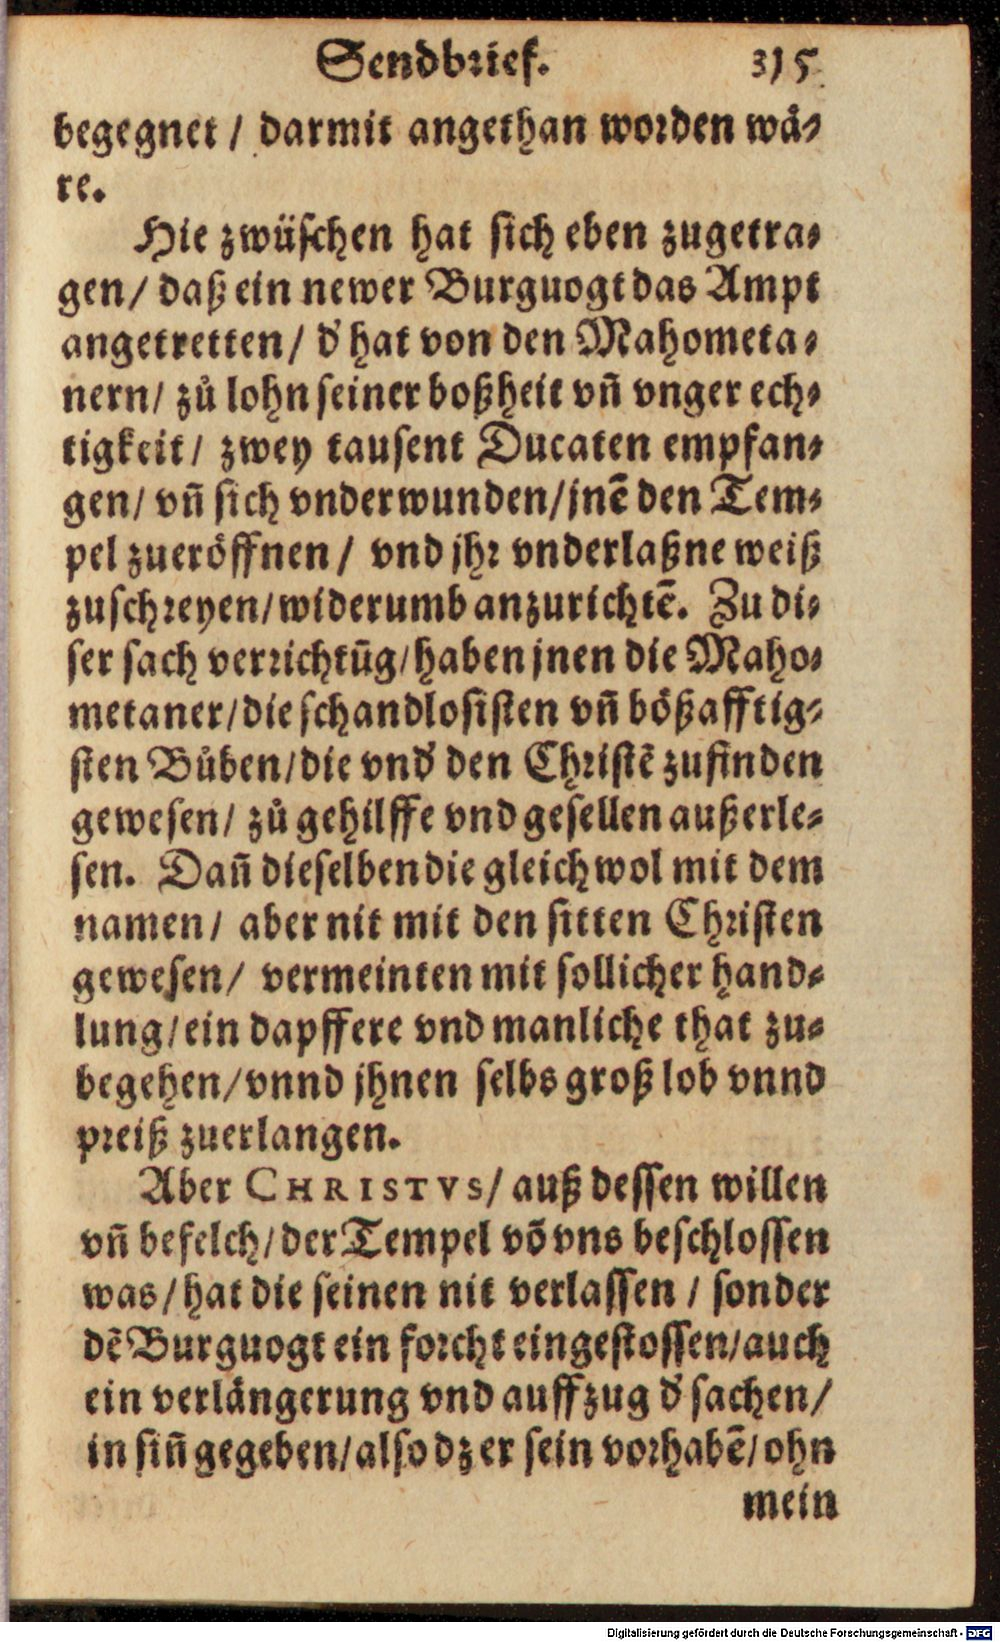 Sendbrief. 315
begegnet / darmit angethan worden wå⸗
re.
Hie zwüschen hat sich eben zugetra⸗
gen/ daß ein newer Burguogt das Ampt
angetretten/ d' hat von den Mahometa⸗
nern/ zů lohn seiner boßheit vñ vnger ech⸗
tigkeit/ zwey tausent Ducaten empfan⸗
gen/ vñ sich vnderwunden/jnẽ den Tem⸗
pel zueröffnen / vnd jhr vnderlaßne weiß
zuschreyen/widerumb anzurichtẽ. Zu di⸗
ser sach verrichtũg/haben jnen die Maho⸗
metaner/die schandlosisten vñ bößafftig⸗
sten Bůben/die vnd' den Christẽ zufinden
gewesen/ zů gehilffe vnd gesellen außerle⸗
sen. Dañ dieselben die gleichwol mit dem
namen/ aber nit mit den sitten Christen
gewesen/ vermeinten mit sollicher hand⸗
lung/ein dapffere vnd manliche that zu⸗
begehen/vnnd jhnen selbs groß lob vnnd
preiß zuerlangen.
Aber CHRISTVS/ auß dessen willen
vñ befelch/der Tempel võ vns beschlossen
was/hat die seinen nit verlassen / sonder
dẽ Burguogt ein forcht eingestossen/auch
ein verlängerung vnd auffzug d' sachen/
in siñ gegeben/also dz er sein vorhabẽ/ohn
mein
Digitalisierung gefördert durch die Deutsche Forschungsgemeinschaft - DFG